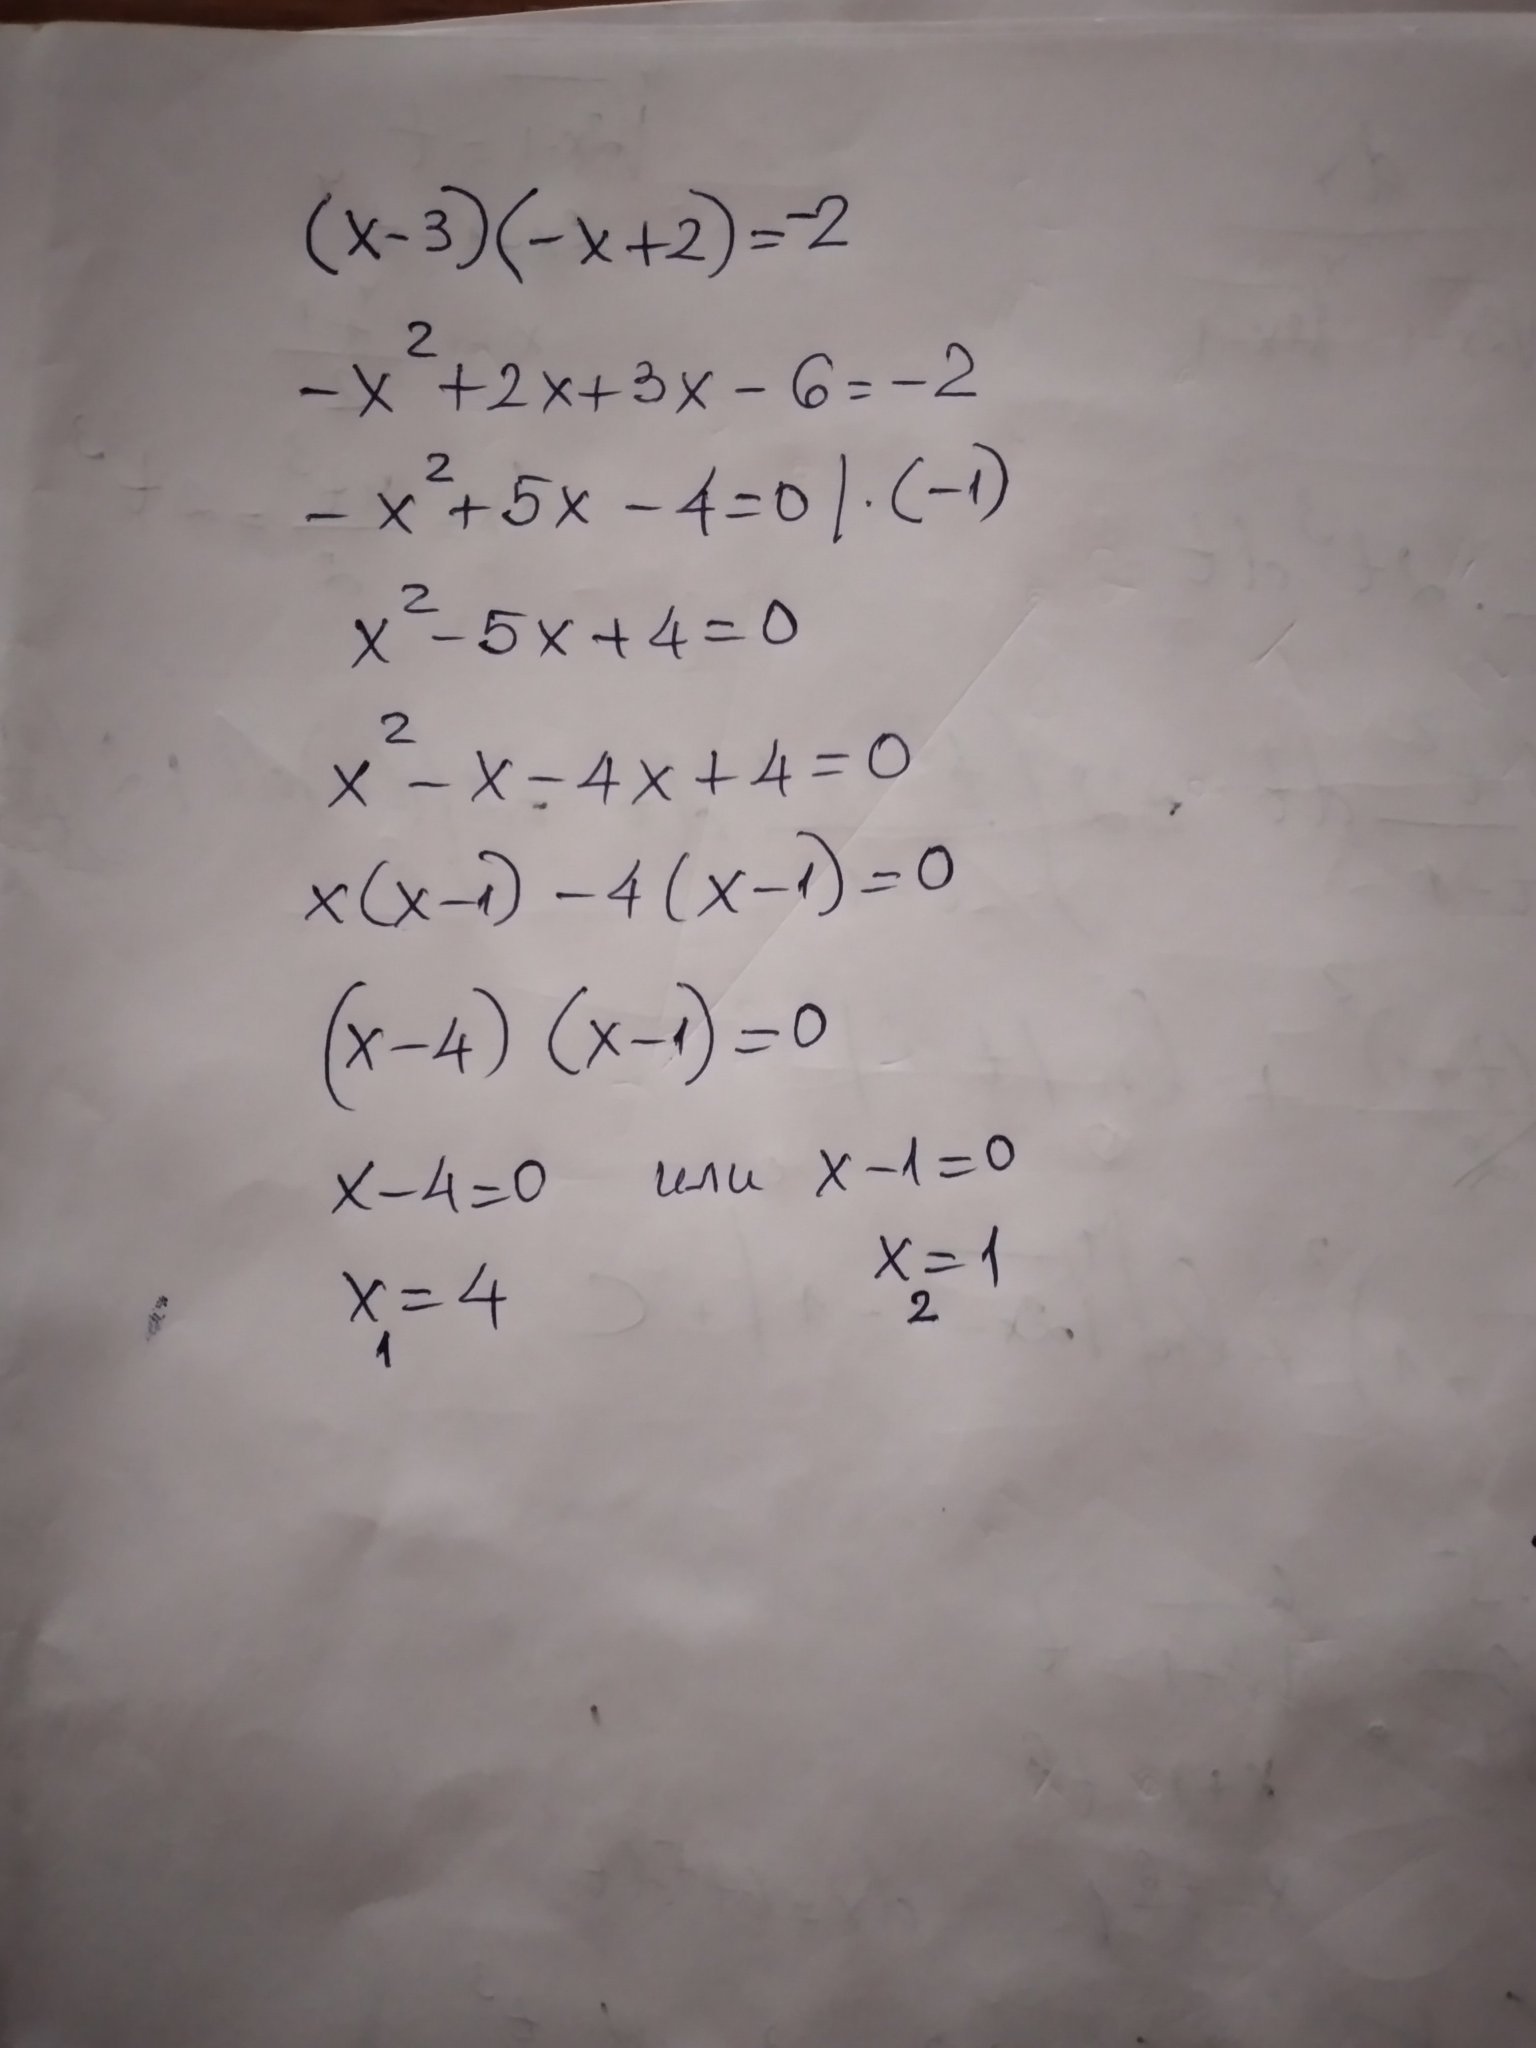 (x-3)(-x+2)=-2
-x²+2x+3x-6=-2
-x²+5x-4=0 |·(-1)
x²-5x+4=0
x²-x-4x+4=0
x(x-1)-4(x-1)=0
(x-4)(x-1)=0
x-4=0 или x-1=0
x₁=4 x₂=1